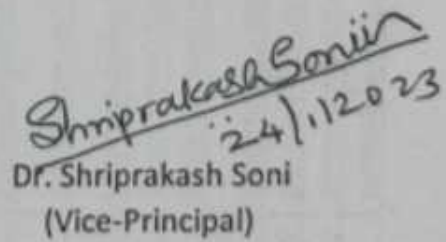 Shriprakash Soni
24/1/2023
Dr. Shriprakash Soni
(Vice-Principal)